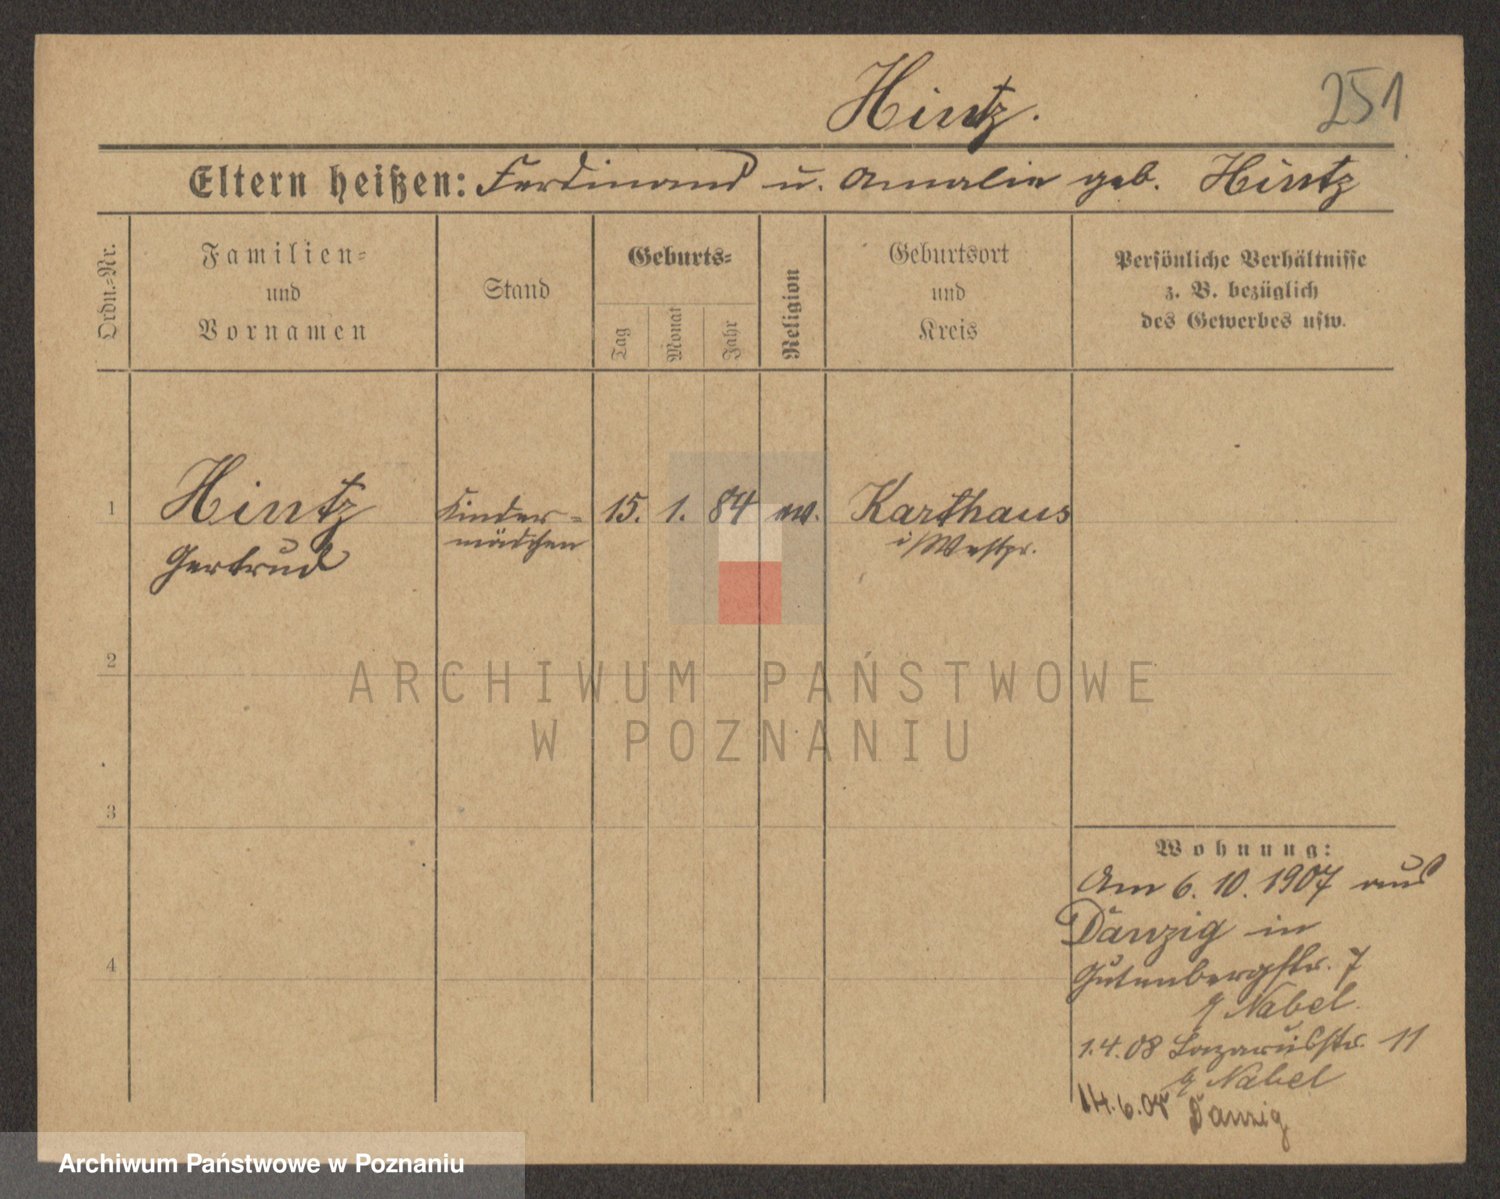 Hintz.
251
Eltern heißen: Ferdinand u. Amalie geb. Hintz
Ordn.-Nr.
Familien-
und
Vornamen
Stand
Geburts-
Tag
Monat
Jahr
Religion
Geburtsort
und
Kreis
Persönliche Verhältnisse
z. B. bezüglich
des Gewerbes usw.
1
Hintz
Gertrud
Kinder-
mädchen
15. 1. 84 ev.
Karthaus
i/Westpr.
2
ARCHIWUM PAŃSTWOWE
W POZNANIU
3
4
Wohnung:
Am 6. 10. 1907 aus
Danzig in
Gutenbergstr. 7
Nabel
1.4.08 Lazarusstr. 11
Nabel
14.6.08 Danzig
Archiwum Państwowe w Poznaniu